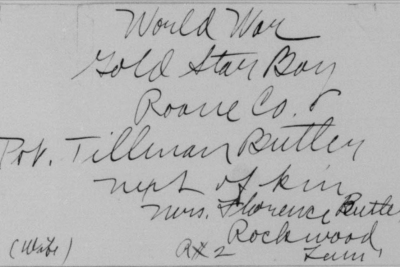 World War
Gold Star Boy
Roane Co.
Pvt. Tillman Butler
next of kin
Mrs. Florence Butler
Rockwood,
(Wife) R#2 Tenn.